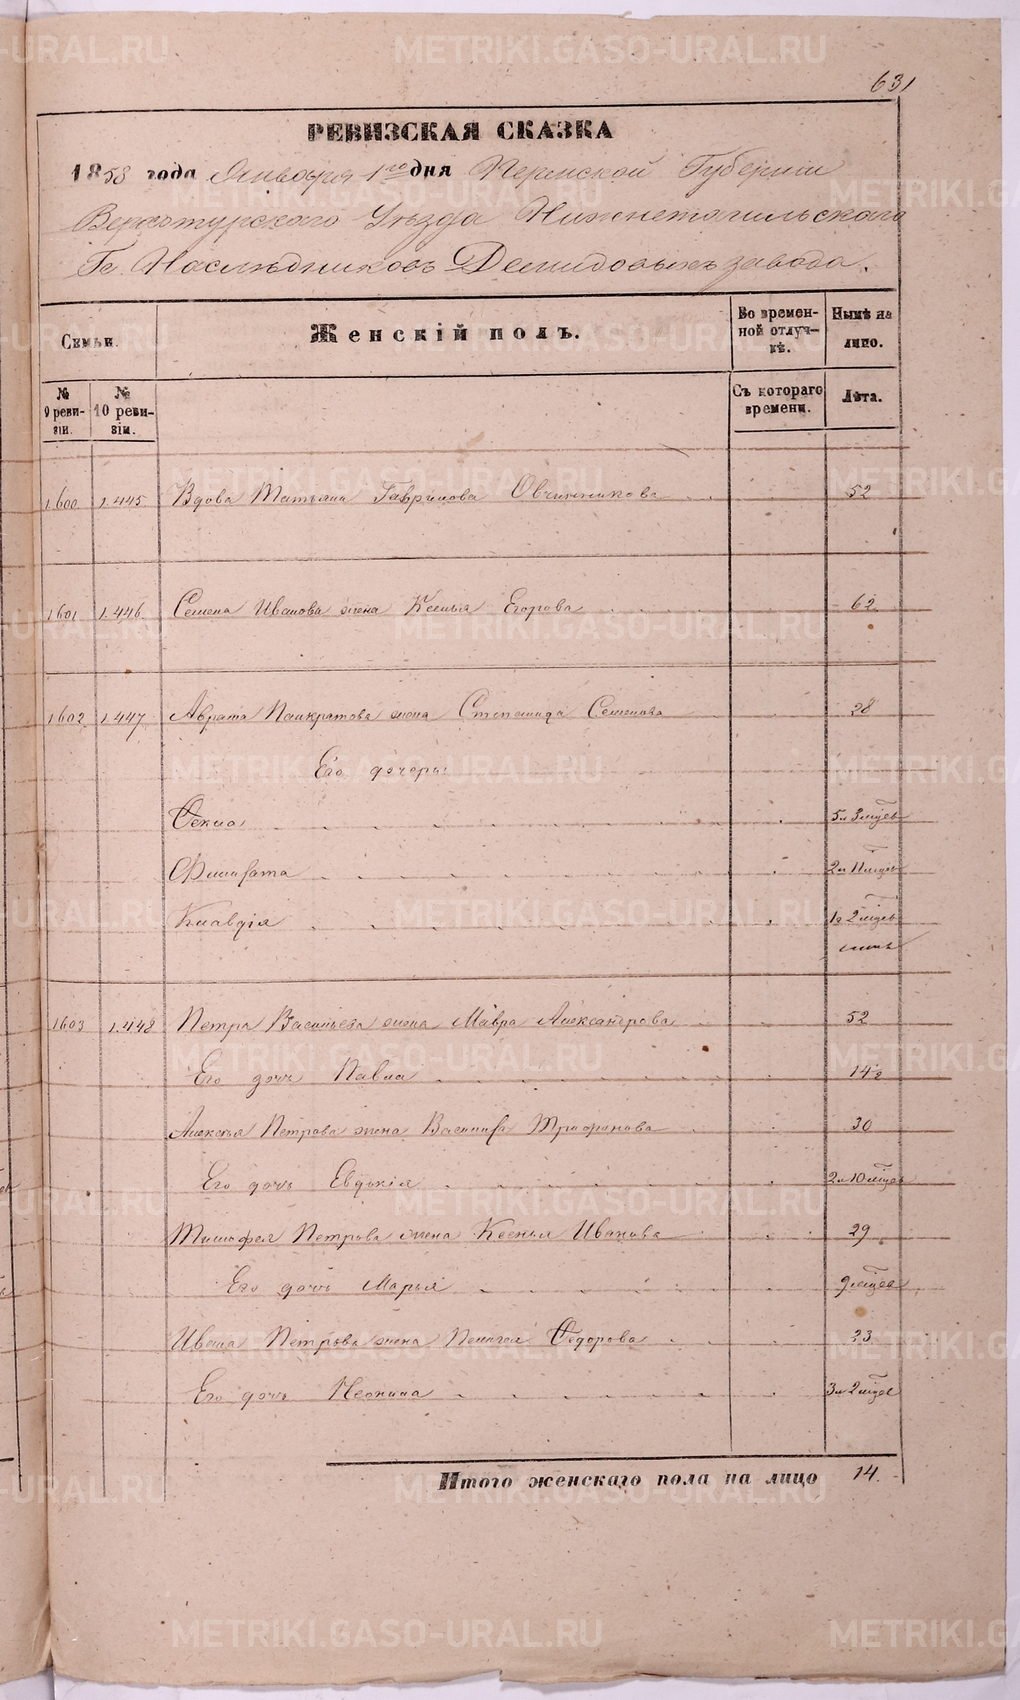 631
РЕВИЗСКАЯ СКАЗКА
1858 года Января 1го дня Пермской Губернии
Верхотурского Уѣзда Нижнетагильскаго
Гг. Наслѣдниковъ Демидовыхъ завода.
Семьи.
Женскій полъ.
Во временной отлучкѣ.
Нынѣ на лицо.
№ 9 ревизіи.
№ 10 ревизіи.
Съ котораго времени.
Лѣта.
1600 1.445 Вдова Татьяна Гаврилова Овчинникова 52
1601 1.446 Семена Иванова жена Ксенья Егорова 62
1602 1.447 Аврама Панкратова жена Степанида Семенова 28
Его дочери:
Фекла 5л 3 мѣцевъ
Филицата 2л 11 мѣцевъ
Клавдія 1г 2 мѣцевъ
1603 1.448 Петра Васильева жена Мавра Александрова 52
Его дочь Павла 14
Алексѣя Петрова жена Васса Трифонова 30
Его дочь Евдокія 2л 10 мѣцевъ
Тимофея Петрова жена Ксенья Иванова 29
Его дочь Марья 9 мѣцевъ
Ивана Петрова жена Пелагея Федорова 23
Его дочь Неонила 3л 2 мѣцев
Итого женскаго пола на лицо 14.
METRIKI.GASO-URAL.RU